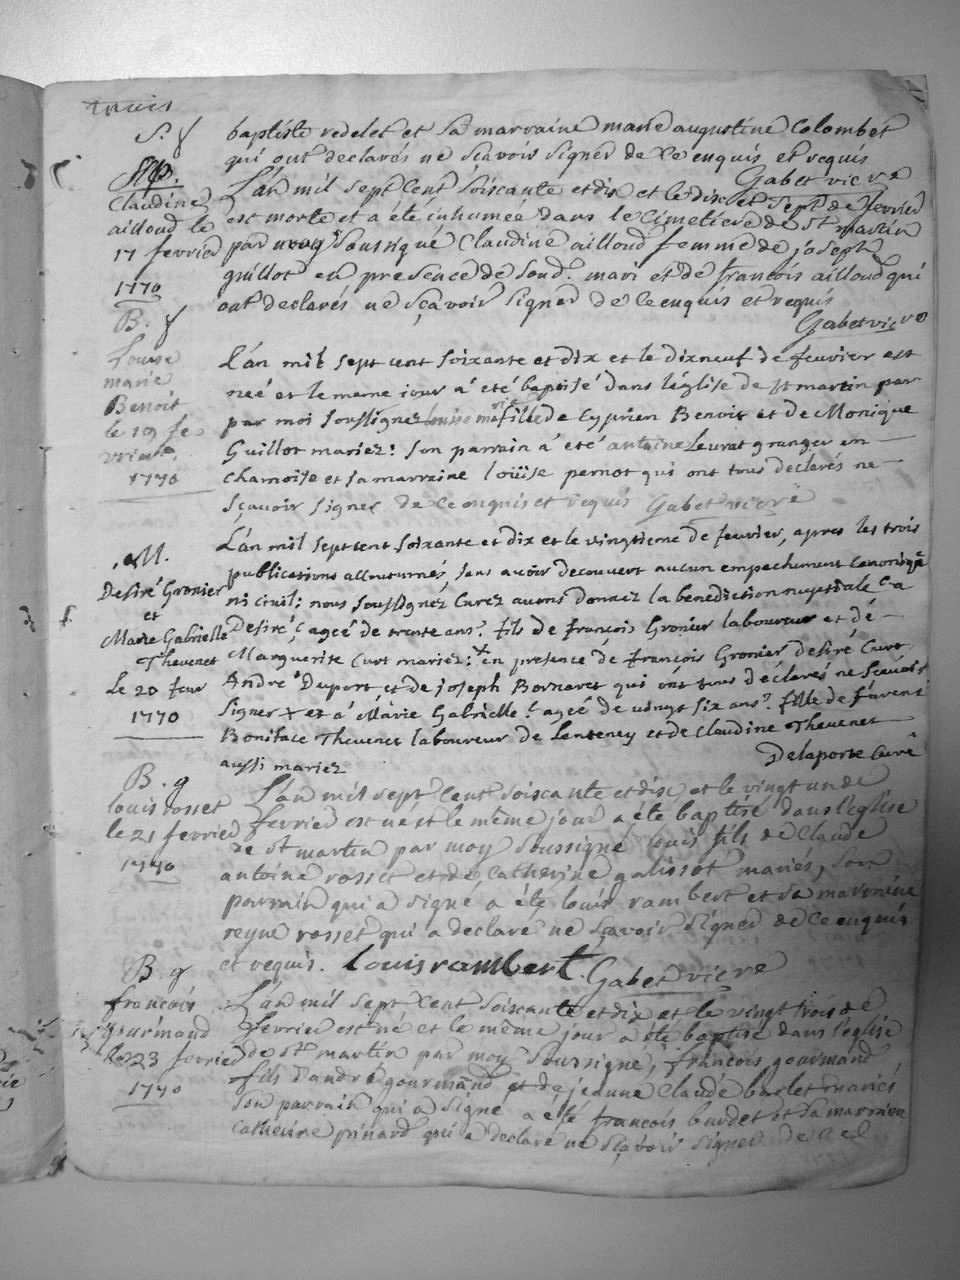 trois
S. f
baptiste redelet et Sa marraine marie augustine Colombet
qui ont declarés ne sçavoir signer de ce enquis et requis
Gabet vicre
Claudine
ailloud le
17 fevrier
1770
L'an mil sept cent soiscante et dix et le disc et sept de fevrier
est morte et a été inhumeé dans le Cimetiere de St martin
par moy soussigné Claudine ailloud femme de joseph
guillot en presence de soud. mari et de francois ailloud qui
ont declarés ne sçavoir signer de ce enquis et requis
Gabet vicre
B. f
Louise
marie
Benoit
le 19 fe
vrier
1770
L'an mil sept cent soixante et dix et le dixneuf de fevrier est
neé et le meme iour a été baptisé dans l'église de st martin par
par moi soussigné louise marie fille de Cyprien Benoit et de Monique
Guillot mariez: son parrain a été antoine Leurat granger en
chamoise et sa marraine loüise pernot qui ont tous declarés ne
sçavoir signer de ce enquis et requis Gabet vicre
M.
Desiré Gronier
et
Marie Gabrielle
Thevenet
Le 20 feur
1770
L'an mil sept cent soixante et dix et le vingtieme de fevrier, apres les trois
publications accoutumés, sans avoir decouvert aucun empechement canonique
ni civil; nous soussignez Curez avons donnez la benediction nuptiale a
Desiré agé de trente ans fils de françois Gronier laboureur et de
Marguerite Curt mariez: en presence de françois Gronier desiré Curt
André Duport et de joseph Bornaret qui ont tous déclarés ne sçavoir
signer x et a Marie Gabrielle agée de vingt six ans fille de
Boniface Thevenet laboureur de Lenteney et de Claudine Thevenet
aussi mariez
Delaporte Curé
B. g
louis rosset
le 21 fevrier
1770
L'an mil sept cent soiscante et dix et le vingt un de
fevrier est né et le même jour a été baptisé dans l'eglise
de St martin par moy soussigné louis fils de Claude
antoine rosset et de Catherine galissot mariés, son
parrain qui a signé a été louis rambert et sa marraine
reyne rosset qui a declaré ne sçavoir signer de ce enquis
et requis. Louis rambert. Gabet vicre
B g
francois
gourmand
le 23 fevrier
1770
L'an mil sept cent soiscante et dix et le vingt trois de
fevrier est né et le même jour a été baptisé dans l'eglise
de St martin par moy soussigné, francois gourmand
fils d'andré gourmand et de jeanne Claude barlet mariés
son parrain qui a signé a été francois burdet et sa marraine
catherine pinard qui a declaré ne sçavoir signer de ce